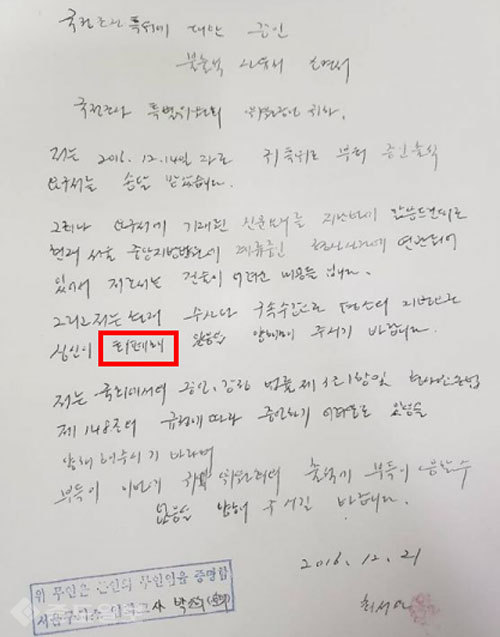 국정조사 특위에 대한 증인
불출석 사유서 소명서
국정조사 특별위원회 위원장님 귀하.
저는 2016. 12.14일 자로 귀 특위로 부터 증인출석
요구서를 송달 받았습니다.
그러나 요구서에 기재된 신문요지를
현재 서울 중앙지방법원에 계류중인 형사사건에 연관되어
있어서 저로서는 진술이 어려운 내용들 입니다.
그리고 저는 현재 수사와 구속수감으로 평소의 지병으로
심신이 피폐해 있음을 양해해 주시기 바랍니다.
저는 국회에서의 증언, 감정 법률 제3조1항및 형사소송법
제148조의 규정에 따라 증언하기 어려움이 있음을
양해 해주시기 바라며
부득이 이번 귀 위원회의 출석에 부득이 응할수
없음을 양해해 주시길 바랍니다.
2016. 12. 21
최서원
위 무인은 본인의 무인임을 증명함
서울구치소 교사 박